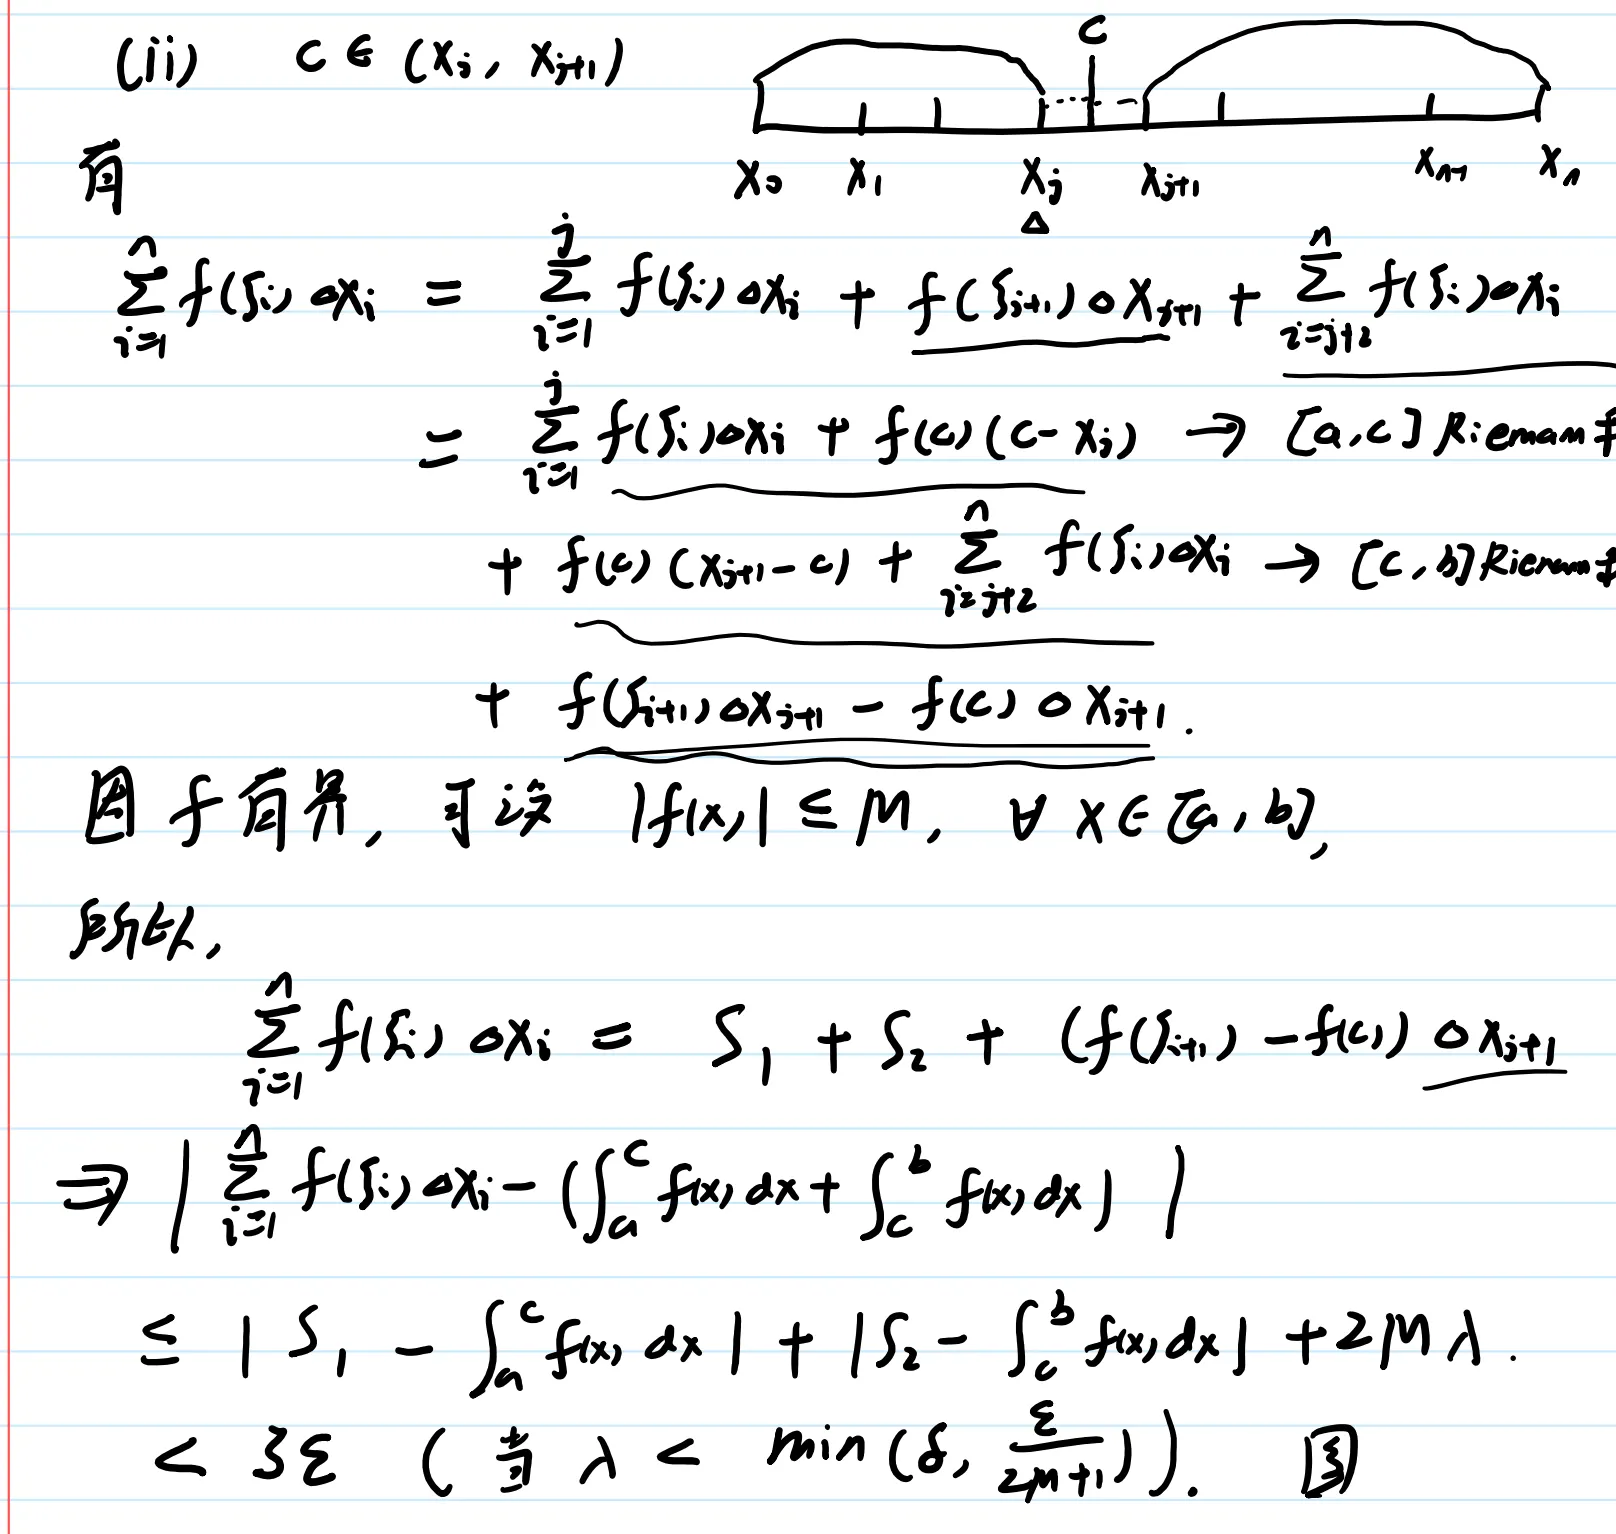 (ii) C ∈ (xⱼ, xⱼ₊₁)
C
x₀ x₁ xⱼ xⱼ₊₁ xₙ₋₁ xₙ
△
有
∑ᵢ₌₁ⁿ f(ξᵢ)△xᵢ = ∑ᵢ₌₁ʲ f(ξᵢ)△xᵢ + f(ξⱼ₊₁)△xⱼ₊₁ + ∑ᵢ₌ⱼ₊₂ⁿ f(ξᵢ)△xᵢ
= ∑ᵢ₌₁ʲ f(ξᵢ)△xᵢ + f(c)(c-xⱼ) → [a,c] Riemann
+ f(c)(xⱼ₊₁-c) + ∑ᵢ₌ⱼ₊₂ⁿ f(ξᵢ)△xᵢ → [c,b] Riemann
+ f(ξⱼ₊₁)△xⱼ₊₁ - f(c)△xⱼ₊₁.
因 f 有界, 可设 |f(x)| ≤ M, ∀ x∈[a,b],
所以,
∑ᵢ₌₁ⁿ f(ξᵢ)△xᵢ = S₁ + S₂ + (f(ξⱼ₊₁)-f(c))△xⱼ₊₁
⇒ | ∑ᵢ₌₁ⁿ f(ξᵢ)△xᵢ - (∫ₐᶜ f(x)dx + ∫_c^b f(x)dx) |
≤ | S₁ - ∫ₐᶜ f(x)dx | + | S₂ - ∫_c^b f(x)dx | + 2Mλ.
< 3ε (当 λ < min(δ, ε/(2M+1))).